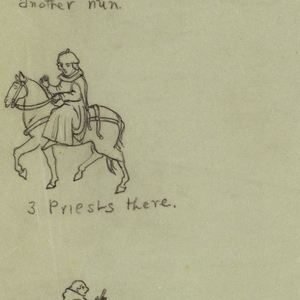 another nun.
3 Priests there.